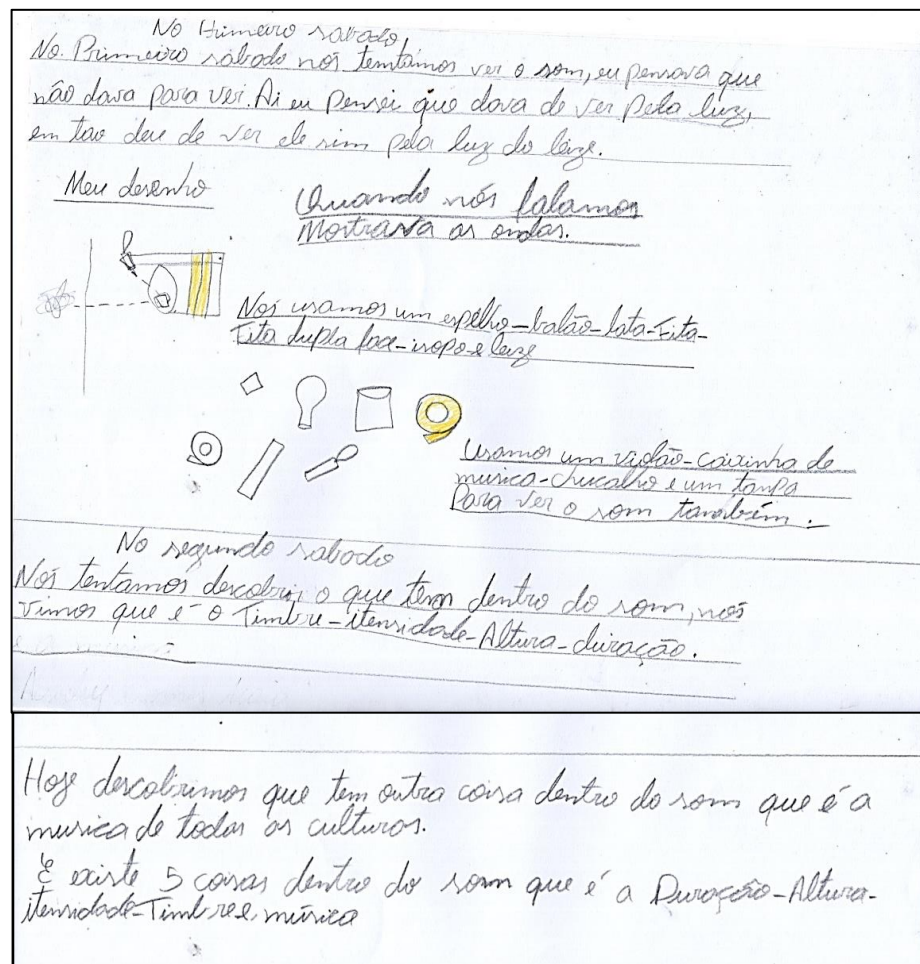 No Primeiro sabado
No Primeiro sábado nós temtamos ver o som, eu pensava que
não dava para ver. Ai eu Pensei que dava de ver Pela luz,
em tao deu de ver ele sim pela luz do laze.
Meu desenho
Quando nós falamos
Mostrava as ondas.
Nos usamos um espelho-balão-lata-Fita-
Fita dupla face-isopo-e laze
Usamos um violão-caixinha de
musica-chucalho e um tampa
Para ver o som também.
No segundo sabado
Nos tentamos descobrir o que tem dentro do som, nós
vimos que é o Timbre-itensidade-Altura-duração.
Hoje descobrimos que tem outra coisa dentro do som que é a
musica de todas as culturas.
E existe 5 coisas dentro do som que é a Duração-Altura-
itensidade-Timbre e música